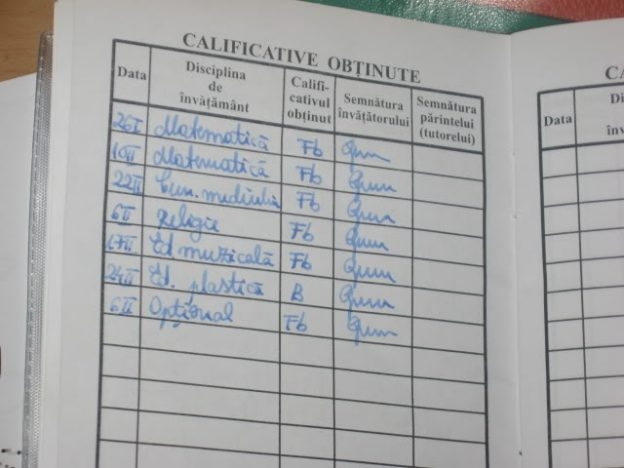 CALIFICATIVE OBȚINUTE
Data Disciplina de învățământ Califi-cativul obținut Semnătura învățătorului Semnătura părintelui (tutorelui)
26 I Matematică Fb
10 II Matematică Fb
22 II Cun. mediului Fb
6 II Religie Fb
17 II Ed muzicală Fb
24 II Ed. plastică B
6 II Opțional Fb
Data